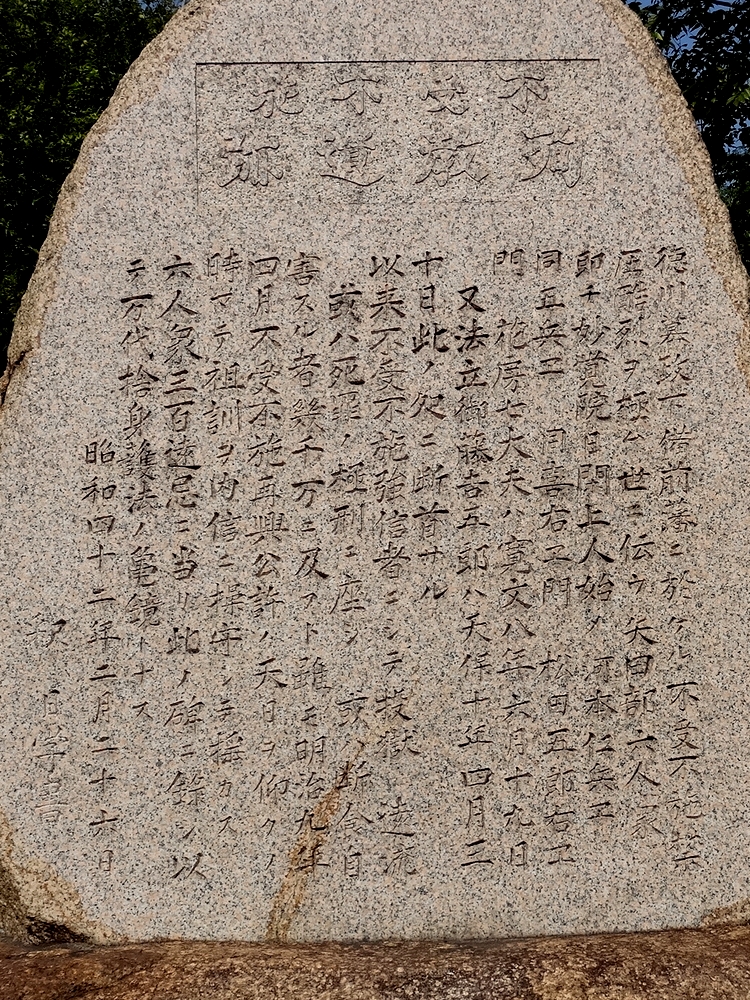 不受不施
殉教道跡
徳川幕政下備前藩ニ於ケル不受不施禁
圧酷烈ヲ極ム世ニ伝ウ矢田部六人衆
即チ妙覚院日閑上人始メ河本仁兵エ
同五兵エ 同喜右エ門 松田五郎右エ
門 花房七大夫ハ寛文八年六月十九日
又法立御藤吉五郎ハ天保十年四月二
十日此ノ処ニ断首サル
以来不受不施強信者ニシテ投獄 遠流
或ハ死罪ノ極刑ニ座シ 或ハ断食自
害スル者幾千万ニ及フト雖モ明治九年
四月不受不施再興公許ノ天日ヲ仰クノ
時マテ祖訓ヲ内信ニ操守シテ楀カス
六人衆三百遠忌ニ当リ此ノ碑ニ録シ以
テ万代捨身護法ノ亀鏡トナス
昭和四十二年二月二十六日
日学書